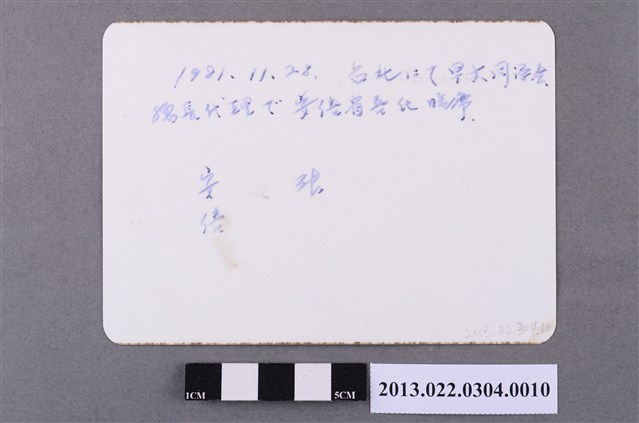 1981. 11. 28. 台北にて早大同窓会
総長代理で安倍省吾化臨席
安 張
倍
2013.22.304.10
1CM
5CM
2013.022.0304.0010